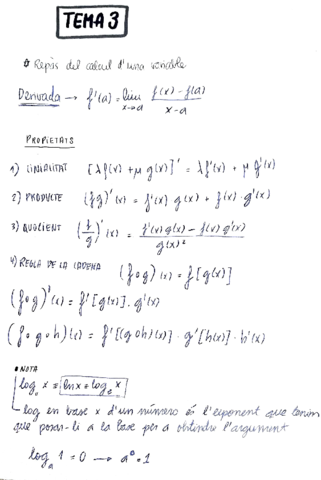 TEMA 3
Repàs del càlcul d'una variable
Derivada → f'(a) = lim x→a f(x) - f(a) / x - a
PROPIETATS
1) LINIALITAT [λf(x) + μ g(x)]' = λf'(x) + μ g'(x)
2) PRODUCTE (fg)'(x) = f'(x) g(x) + f(x) · g'(x)
3) QUOCIENT (f/g)'(x) = f'(x)g(x) - f(x) g'(x) / g(x)²
4) REGLA DE LA CADENA (f∘g)(x) = f[g(x)]
(f∘g)'(x) = f'[g(x)] · g'(x)
(f∘g∘h)(x) = f'[(g∘h)(x)] · g'[h(x)] · h'(x)
• NOTA
log_e x = ln x = log_e x
log en base x d'un número és l'exponent que tenim
que posar-li a la base per a obtindre l'argument
log_a 1 = 0 → a⁰ = 1